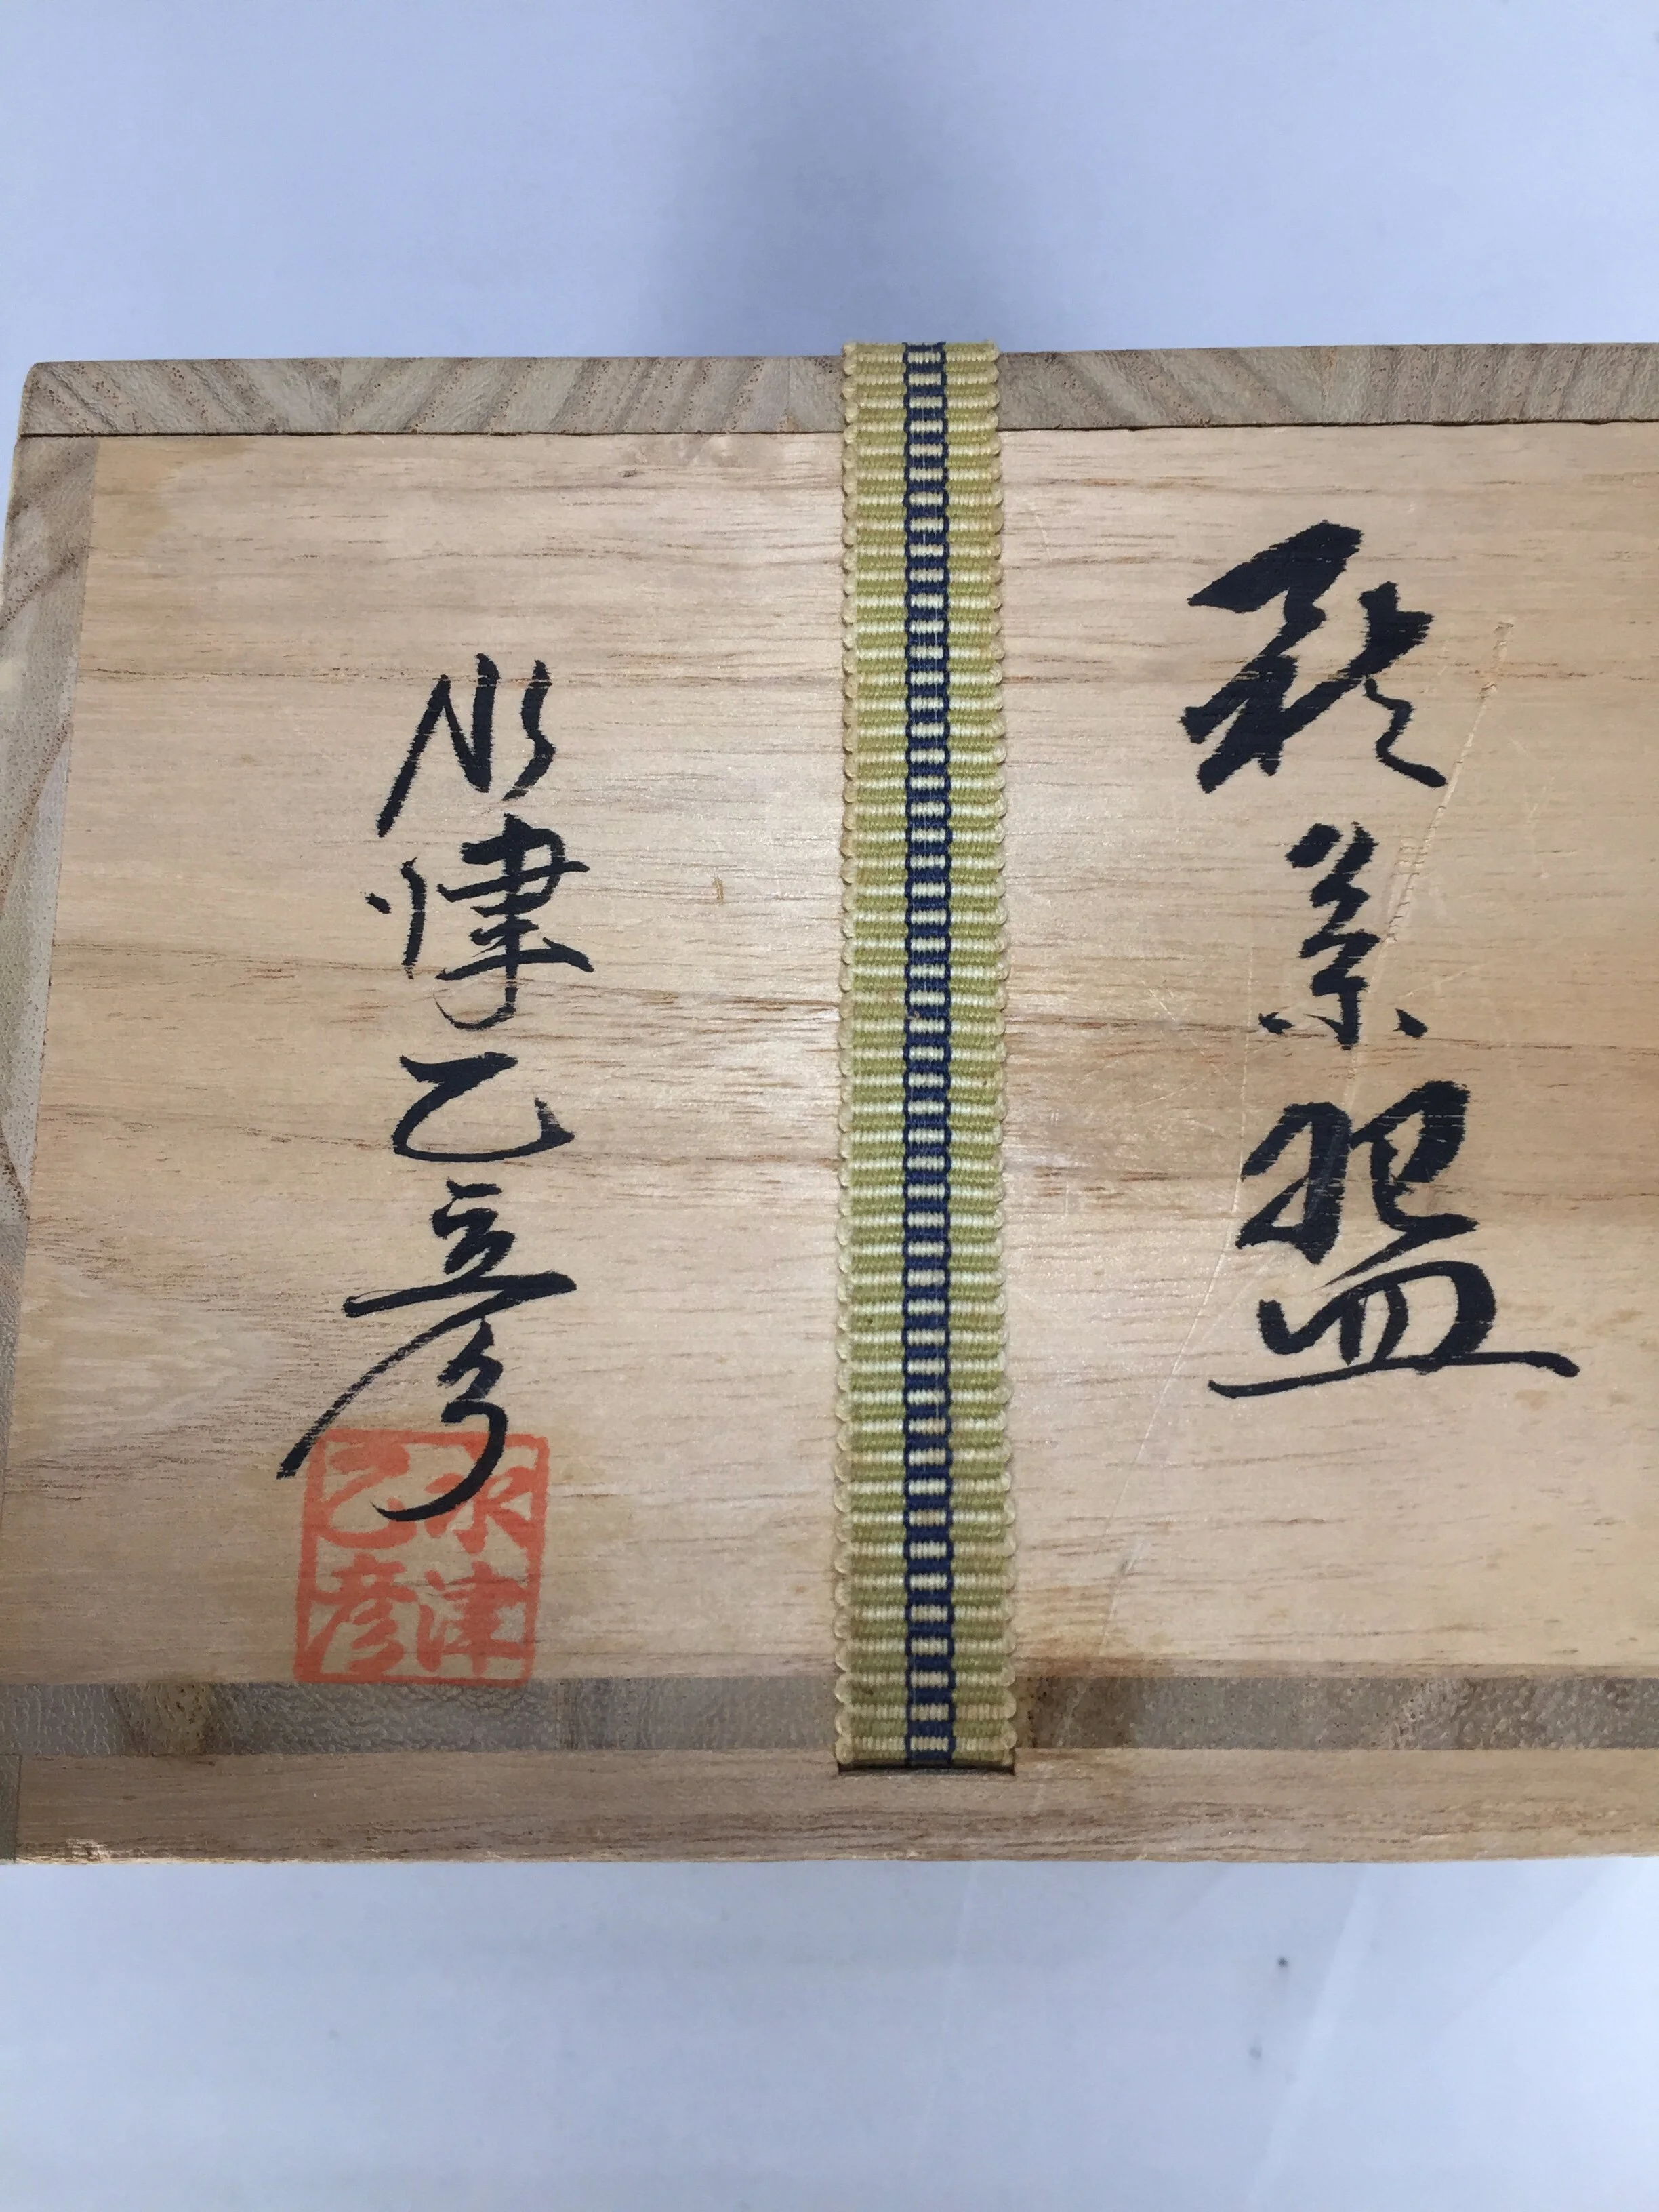 茶盌
水津乙彦
水津
乙彦